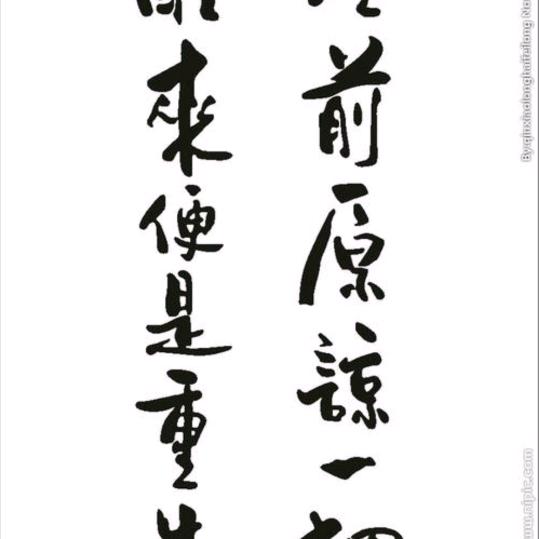 前原諒一切
醒來便是重生
By:qinxiaolonghaifeilong No
www.nipic.com